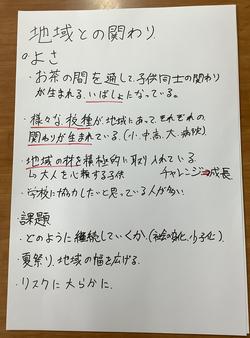 地域との関わり
○よさ
・お茶の間を通して、子供同士の関わり
が生まれる、いばしょになっている。
・様々な校種が地域にあって、それぞれの
関わりが生まれている。(小、中、高、大、病院)
・地域の材を積極的に取り入れている
↳大人を心頼する子供 チャレンジ→成長
・学校に協力したいと思っている人が多い
課題
・どのように継続していくか。(社会の変化、少子化)
・夏祭り、地域の幅を広げる。
・リスクに大らかに。